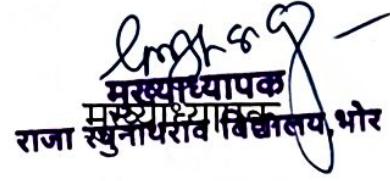 मुख्याध्यापक
मुख्याध्यापक
राजा रघुनाथराव विद्यालय, भोर